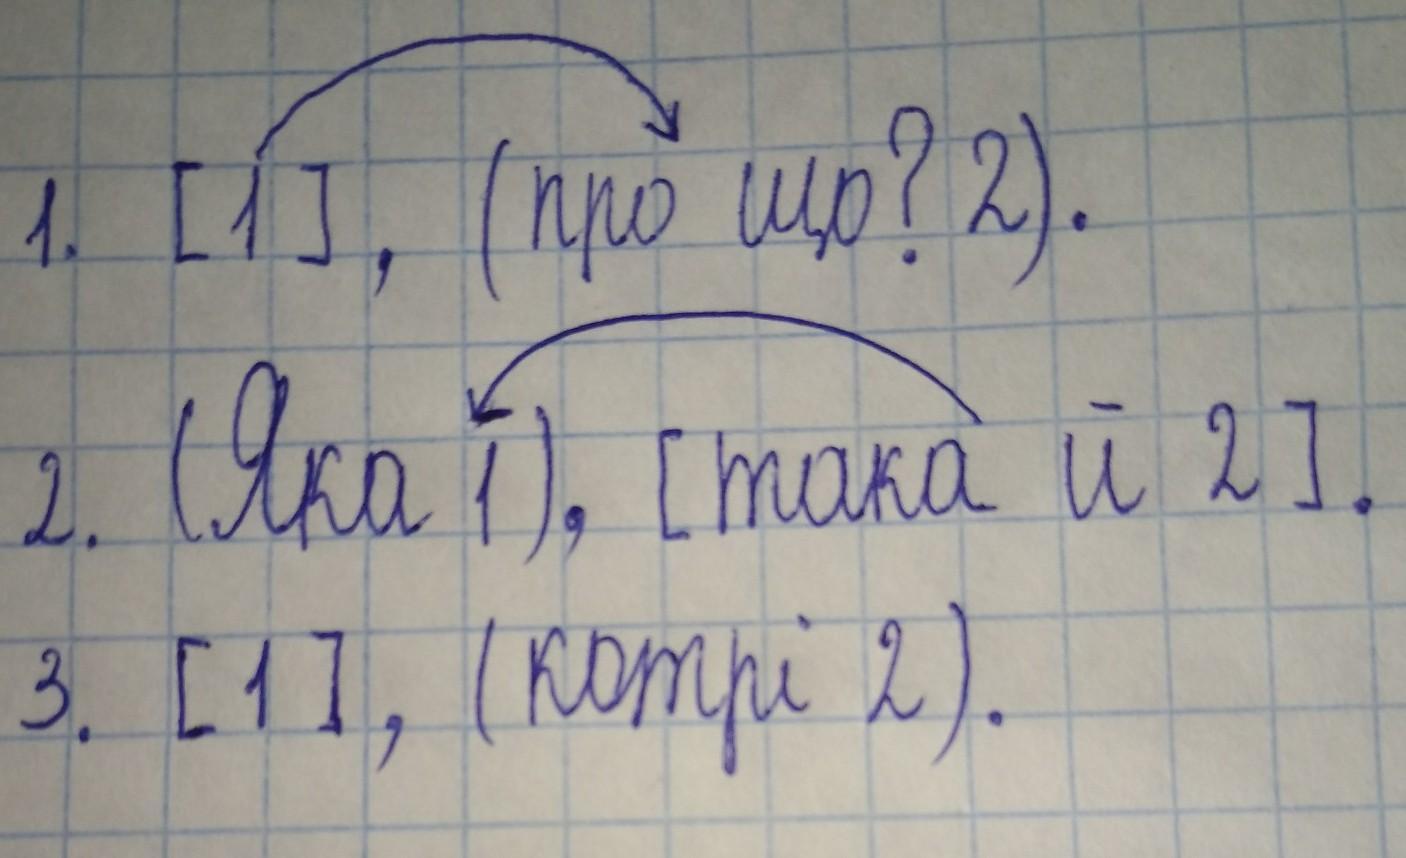 1. [1], (про що? 2).
2. (Яка 1), [така й 2].
3. [1], (котрі 2).